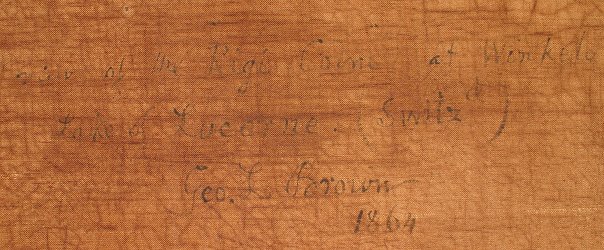 of the Rigi at Winkel
Lake of Lucerne. (Switzd)
Geo. L. Brown
1864